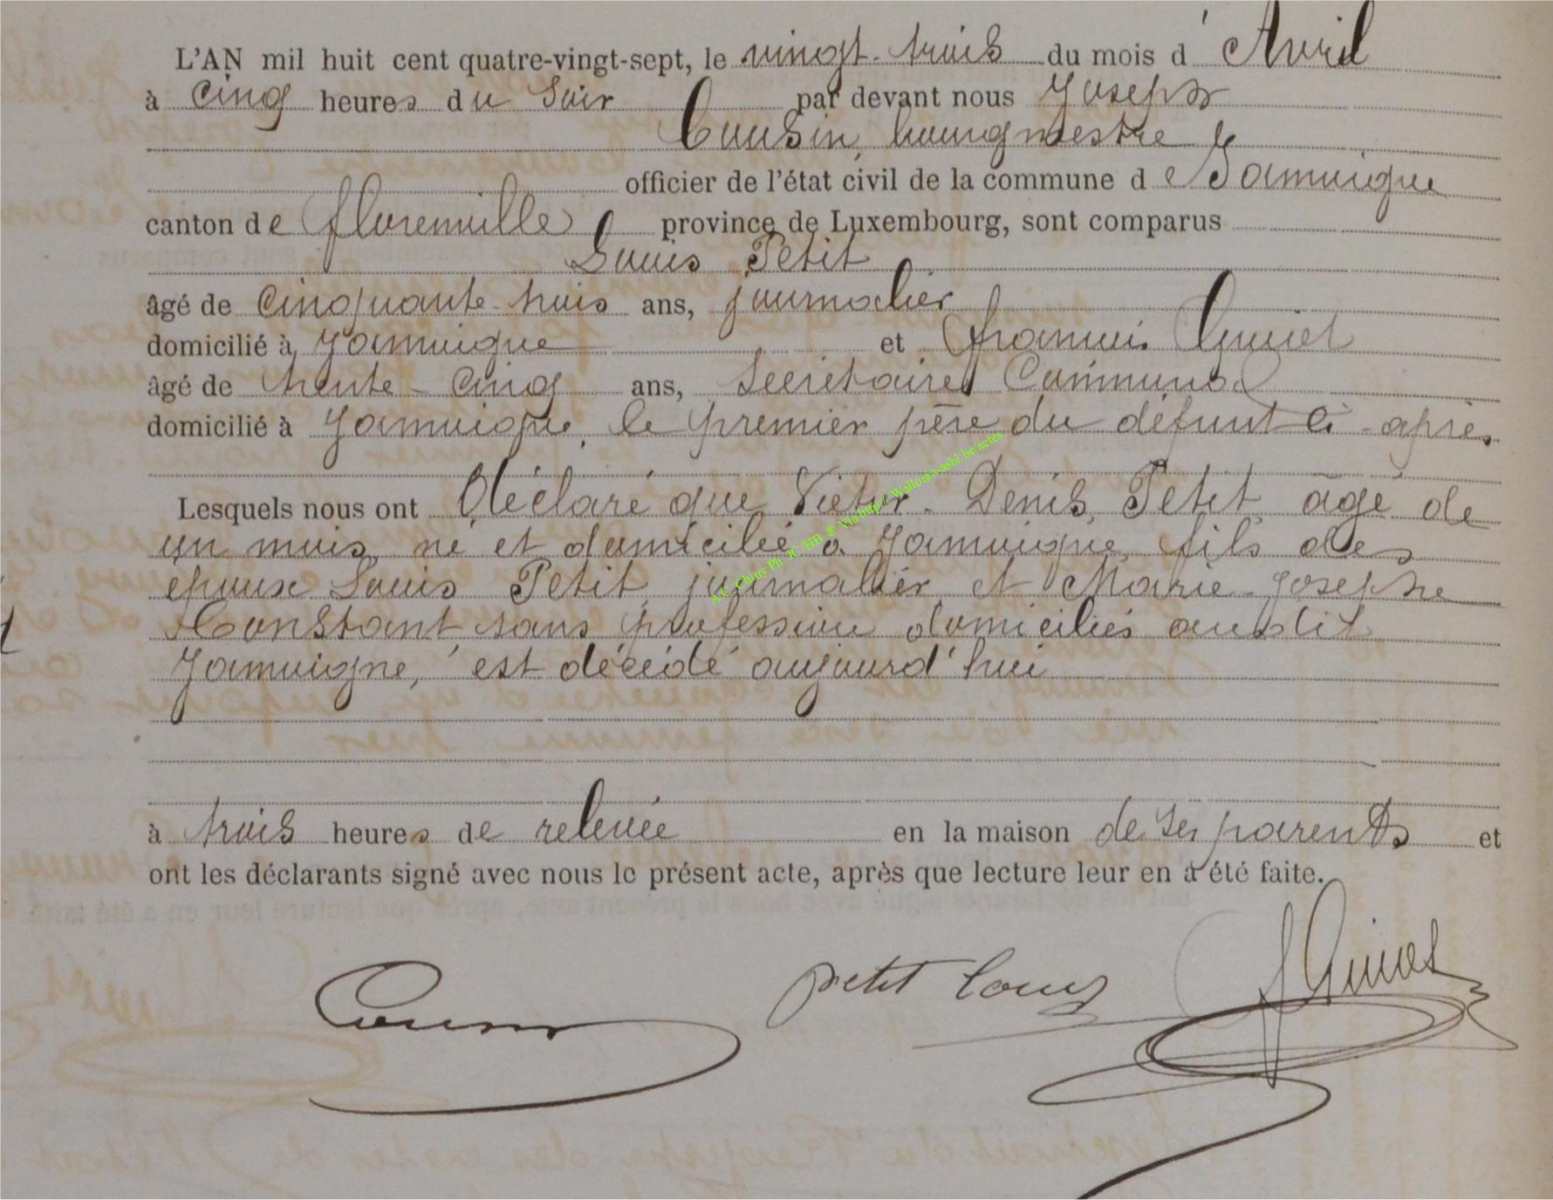 L'AN mil huit cent quatre-vingt-sept, le vingt-trois du mois d'Avril
à cinq heures du soir par devant nous Joseph
Cousin, bourgmestre
officier de l'état civil de la commune de Jamoigne
canton de florenville province de Luxembourg, sont comparus
Louis Petit
âgé de cinquante-trois ans, journalier
domicilié à Jamoigne et
âgé de trente-cinq ans, Secrétaire Communal
domicilié à Jamoigne, le premier père du défunt ci-après.
Lesquels nous ont déclaré que Victor-Denis Petit âgé de
un mois, né et domicilié à Jamoigne, fils des
époux Louis Petit, journalier et Marie-Josephe
Constant sans profession domiciliés audit
Jamoigne, est décédé aujourd'hui
à trois heures de relevée en la maison de ses parents et
ont les déclarants signé avec nous le présent acte, après que lecture leur en a été faite.
Cousin petit Louis